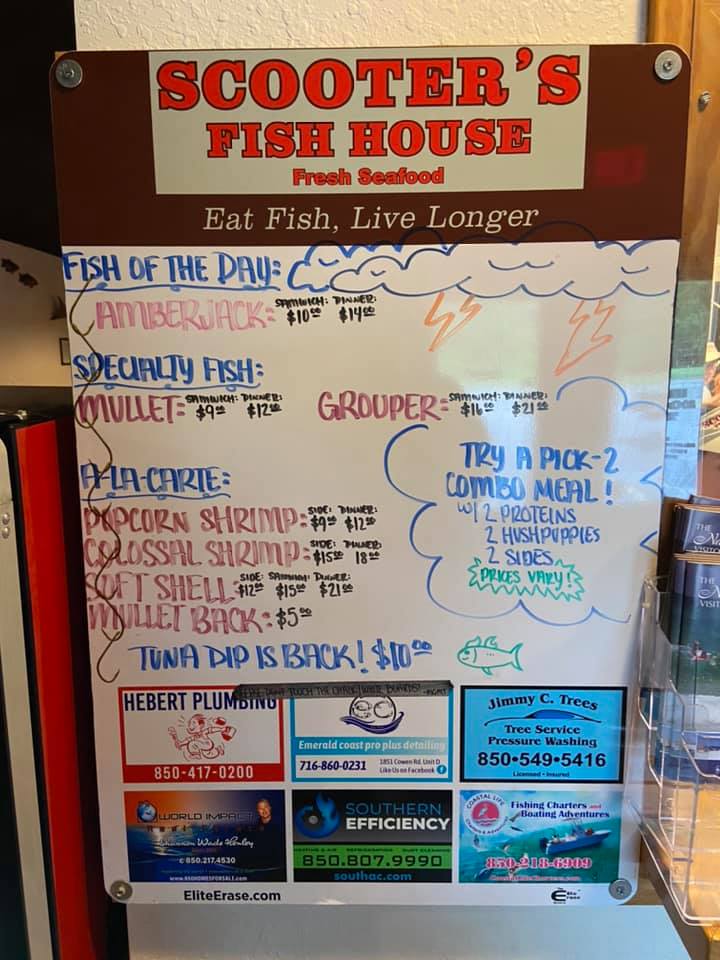 SCOOTER'S
FISH HOUSE
Fresh Seafood
Eat Fish, Live Longer
FISH OF THE DAY:
AMBERJACK: SANDWICH: $10⁰⁰ DINNER: $14⁰⁰
SPECIALTY FISH:
MULLET: SANDWICH: $9⁰⁰ DINNER: $12⁰⁰
GROUPER: SANDWICH: $16⁰⁰ DINNER: $21⁰⁰
A-LA-CARTE:
POPCORN SHRIMP: SIDE: $9⁰⁰ DINNER: $12⁰⁰
COLOSSAL SHRIMP: SIDE: $15⁰⁰ DINNER: 18⁰⁰
SOFT SHELL: SIDE: $12⁰⁰ SANDWICH: $15⁰⁰ DINNER: $21⁰⁰
MULLET BACK: $5⁰⁰
TRY A PICK-2
COMBO MEAL!
W/ 2 PROTEINS
2 HUSHPUPPIES
2 SIDES
PRICES VARY!
TUNA DIP IS BACK! $10⁰⁰
PLEASE DON'T TOUCH THE CHALK/WHITE BOARDS! -MGMT
HEBERT PLUMBING
850-417-0200
Emerald coast pro plus detailing
716-860-0231
1851 Cowen Rd. Unit D
Like Us on Facebook
Jimmy C. Trees
Tree Service
Pressure Washing
850•549•5416
Licensed • Insured
WORLD IMPACT
Shannon Wade Henley
c 850.217.4530
www.850HOMESFORSALE.com
SOUTHERN
EFFICIENCY
HEATING & AIR REFRIGERATION DUCT CLEANING
850.807.9990
southac.com
COASTAL LIFE
Fishing Charters and
Boating Adventures
850-218-6909
EliteErase.com
Elite
Erase
THE
VISIT
THE
VISIT